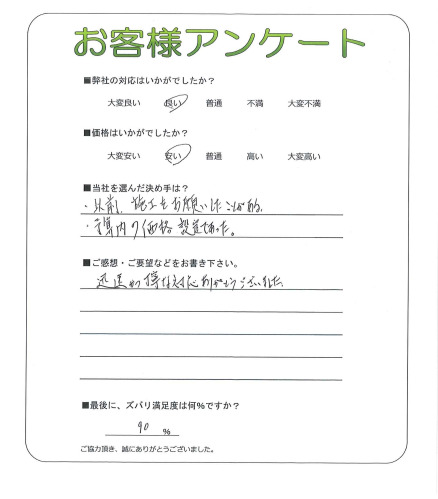 お客様アンケート
■弊社の対応はいかがでしたか？
大変良い 良い 普通 不満 大変不満
■価格はいかがでしたか？
大変安い 安い 普通 高い 大変高い
■当社を選んだ決め手は？
・以前、施工をお願いしたことがある。
・予算内の価格設定であった。
■ご感想・ご要望などをお書き下さい。
迅速かつ丁寧な対応ありがとうございました。
■最後に、ズバリ満足度は何％ですか？
90 %
ご協力頂き、誠にありがとうございました。